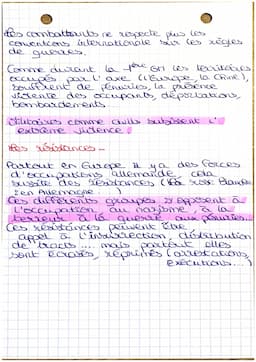 Les combattants ne respecte plus les
conventions internationale sur les règles
de guerres.
Comme durant la 1ère GM les territoires
occupés par l'axe (l'Europe, la Chine),
souffrent de pénuries, la présence
violente des occupants, déportations,
bombardements.
Militaires comme civils subissent l'
extrême violence.
Les résistances...
Partout en Europe il y a des forces
d'occupations allemande, cela
suscite des résistances (la rose blanche
en Allemagne...)
Ces différents groupes s'opposent à
l'occupation, au nazisme, à la
terreur, à la guerre, aux pénuries...
Ces résistances peuvent être,
appel à l'insurrection, distribution
de tracts ... mais partout elles
sont écrasés, réprimés (arrestations,
exécutions...)